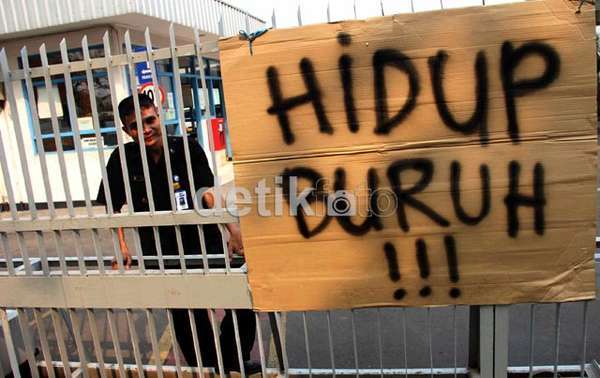 HiDUP
BURUH
!!!
detikfoto